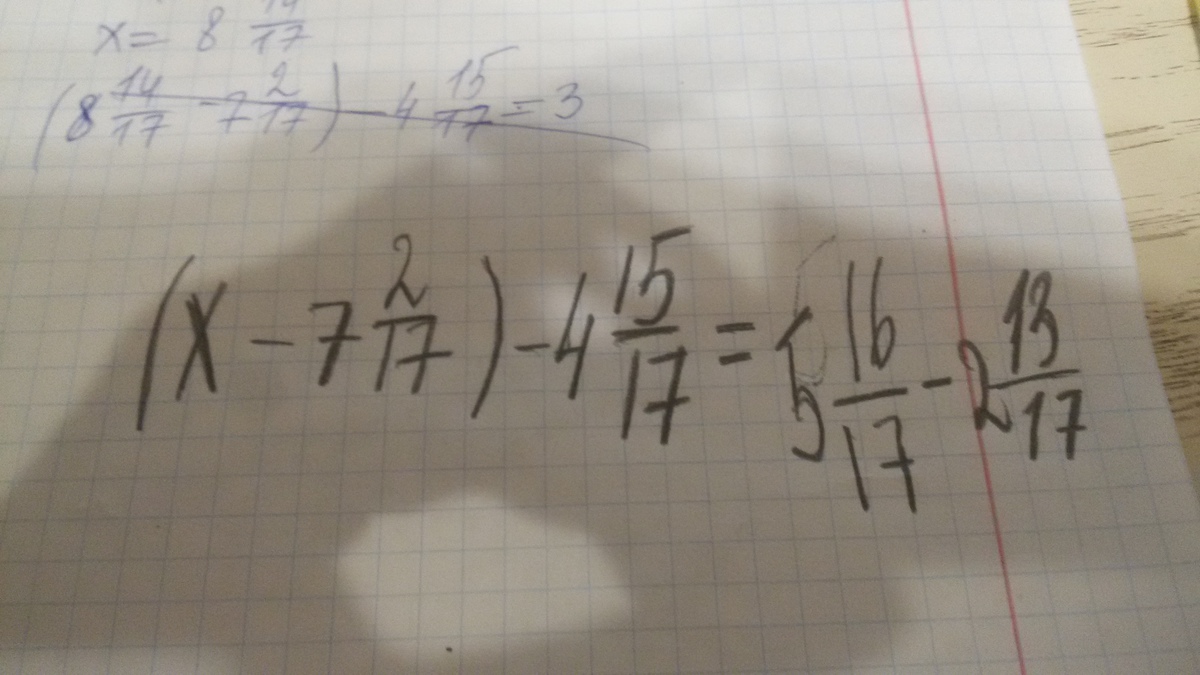 x = 8 14/17
(8 14/17 - 7 2/17) - 4 15/17 = 3
(x - 7 2/17) - 4 15/17 = 5 16/17 - 2 13/17